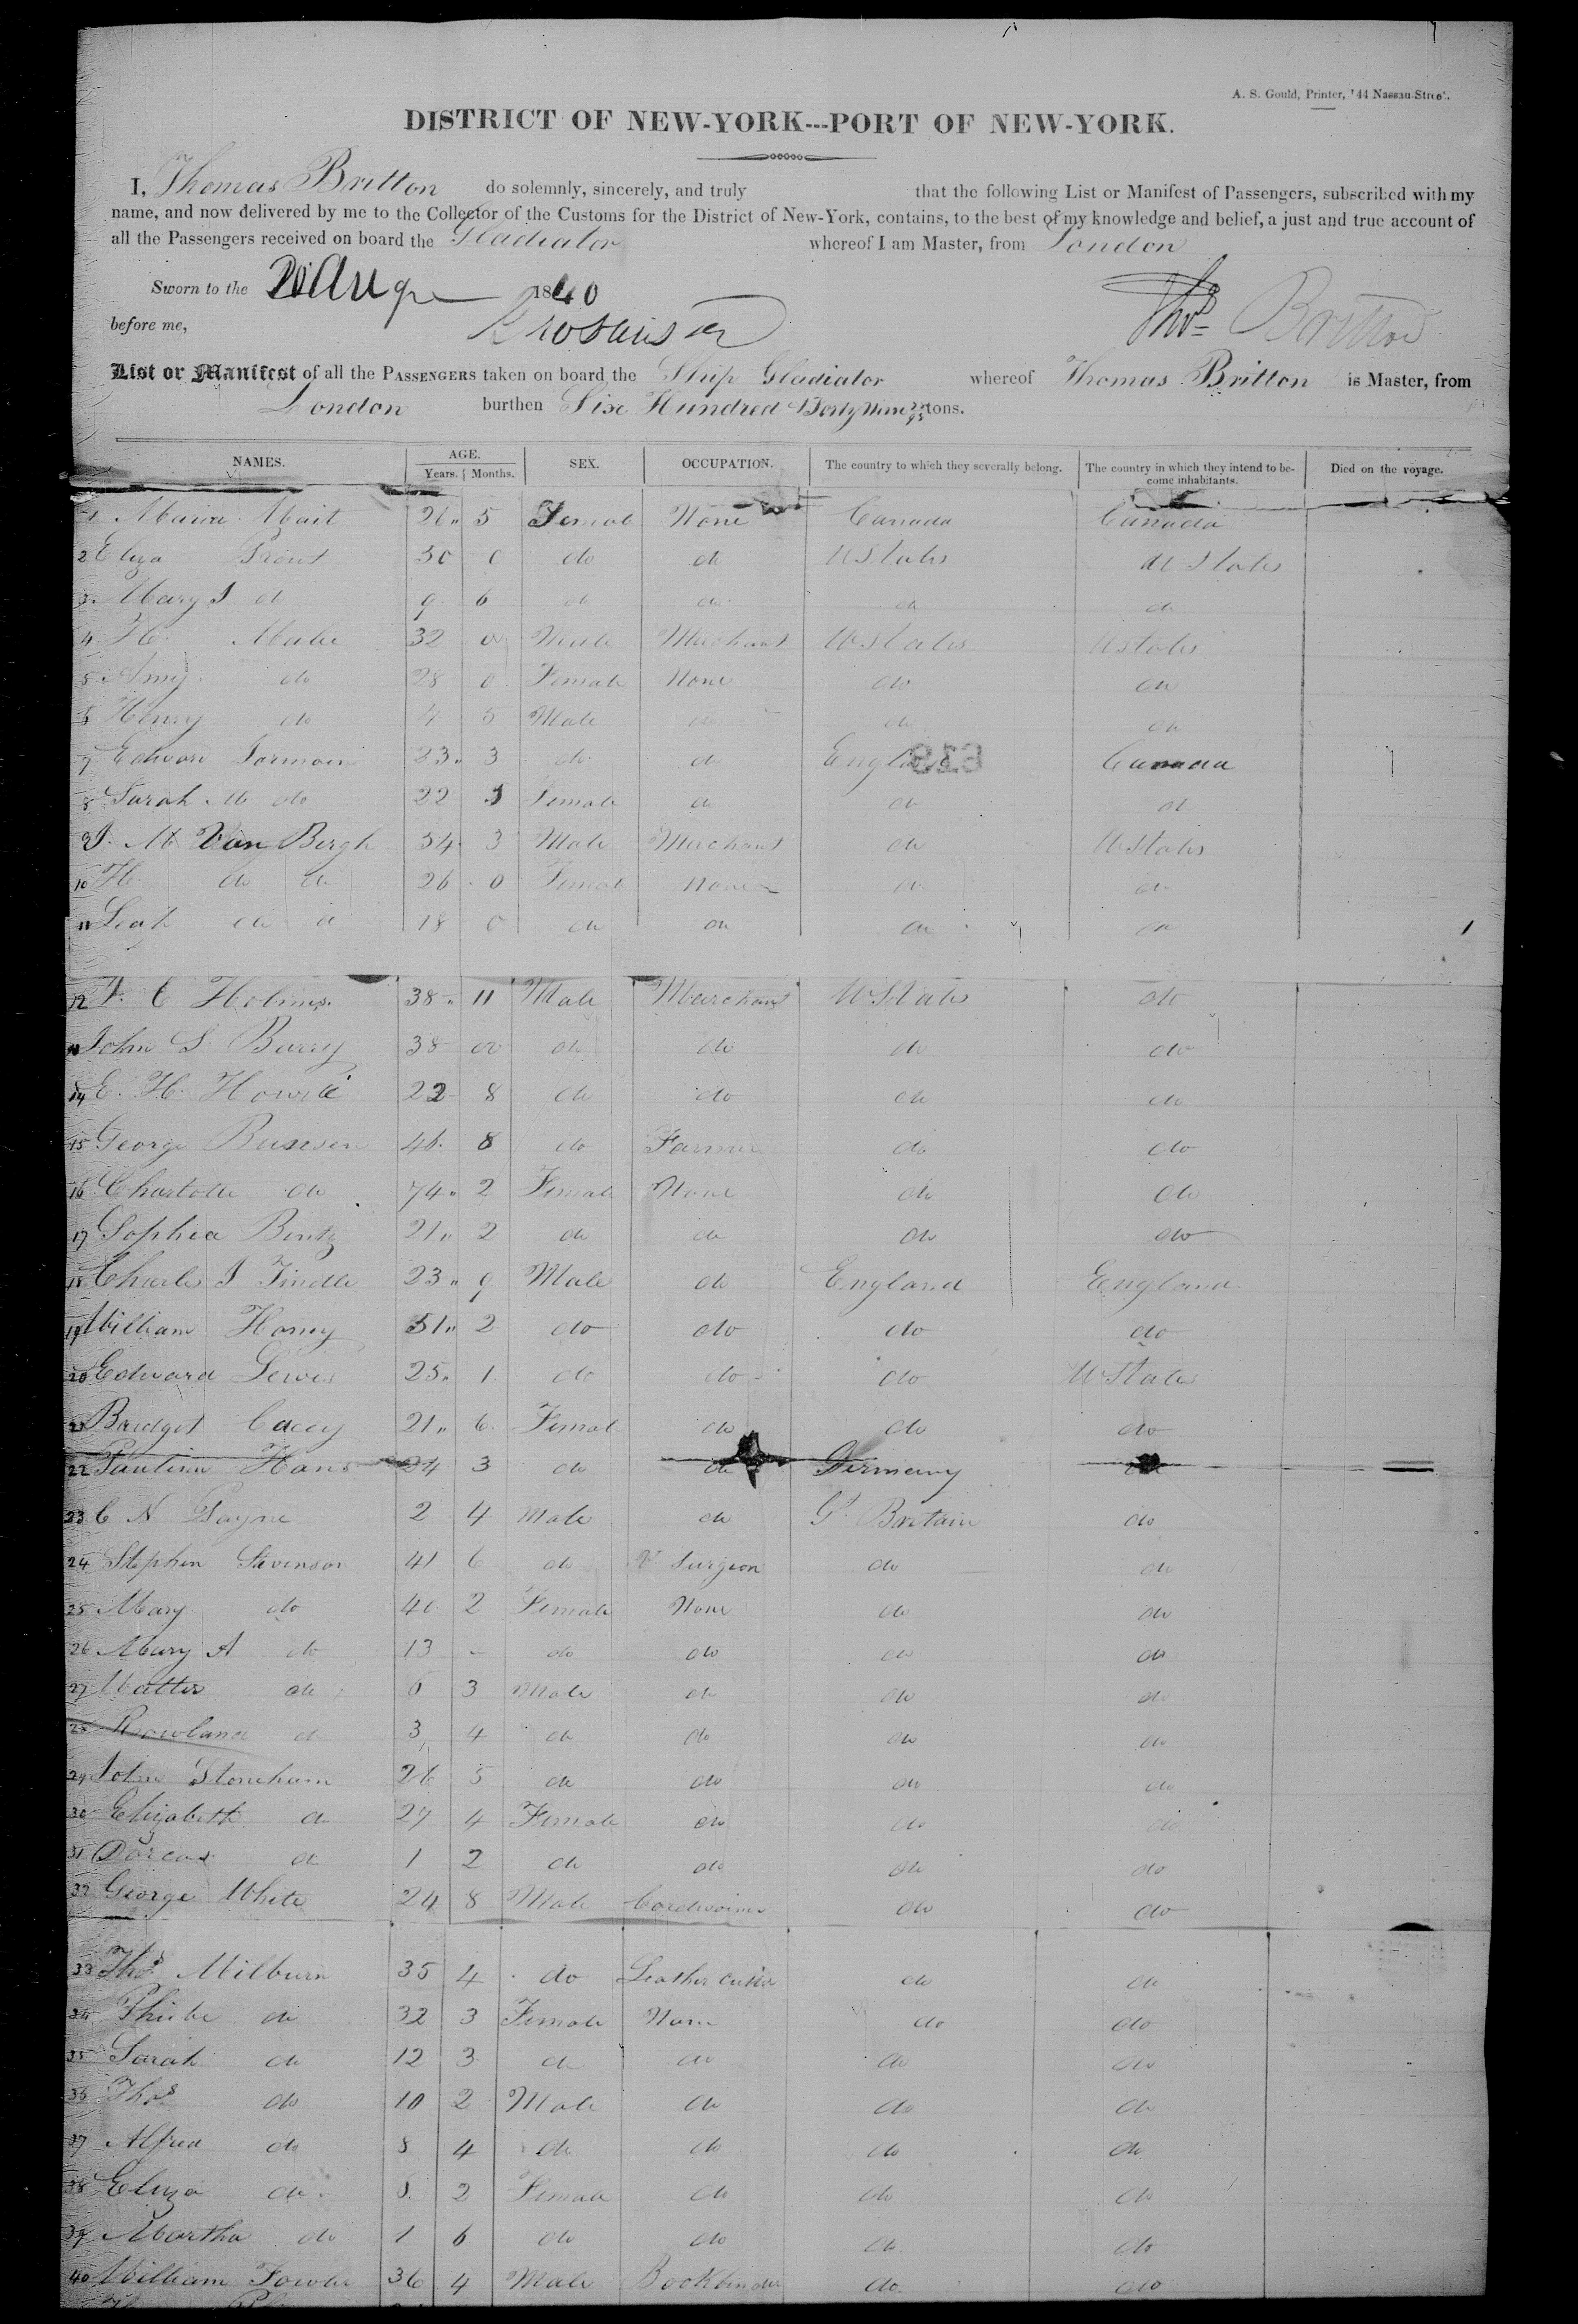 A. S. Gould, Printer, 144 Nassau-Street.
DISTRICT OF NEW-YORK---PORT OF NEW-YORK.
I, Thomas Britton do solemnly, sincerely, and truly that the following List or Manifest of Passengers, subscribed with my
name, and now delivered by me to the Collector of the Customs for the District of New-York, contains, to the best of my knowledge and belief, a just and true account of
all the Passengers received on board the Gladiator whereof I am Master, from London
Sworn to the 20 Aug 1840
before me, Thos Britton
List or Manifest of all the PASSENGERS taken on board the Ship Gladiator whereof Thomas Britton is Master, from
London burthen Six Hundred & Forty Nine tons.
NAMES. AGE. Years. Months. SEX. OCCUPATION. The country to which they severally belong. The country in which they intend to become inhabitants. Died on the voyage.
1 Maria Mait 26 5 Female None Canada Canada
2 Eliza Prout 30 0 do do U States U States
3 Mary J do 9 6 do do do do
4 H. 32 00 Male Merchant U States U States
5 Amy do 28 0 Female None do do
6 Henry do 4 5 Male do do do
7 Edward Jarmain 23 3 do do England Canada
8 Sarah M do 22 3 Female do do do
9 J. M Van Bergh 34 3 Male Merchant do U States
10 H do do 26 0 Female None do do
11 Leah do do 18 0 do do do do
12 F. C Holmes 38 11 Male Merchant U States do
13 John S. Barry 38 00 do do do do
14 E. H. 22 8 do do do do
15 George 46 8 do Farmer do do
16 Charlotte do 74 2 Female None do do
17 Sophia Bentz 21 2 do do do do
18 Charles J Tindle 23 9 Male do England England
19 William 31 2 do do do do
20 Edward Lewis 25 1 do do do U States
21 Bridget Cacey 21 6 Female do do do
22 Pauline Hans 24 3 do do Germany do
23 C N Payne 2 4 Male do Gt Britain do
24 Stephen Stevenson 41 6 do V. Surgeon do do
25 Mary do 40 2 Female None do do
26 Mary A do 13 - do do do do
27 Walter do 6 3 Male do do do
28 Rowland do 3 4 do do do do
29 John Stoneham 26 5 do do do do
30 Elizabeth do 27 4 Female do do do
31 Dorcas do 1 2 do do do do
32 George White 24 8 Male Cordwainer do do
33 Thos Milburn 35 4 do Leather cutter do do
34 Phiebe do 32 3 Female None do do
35 Sarah do 12 3 do do do do
36 Thos do 10 2 Male do do do
37 Alfred do 8 4 do do do do
38 Eliza do 6 2 Female do do do
39 Martha do 1 6 do do do do
40 William Fowler 36 4 Male Bookbinder do do